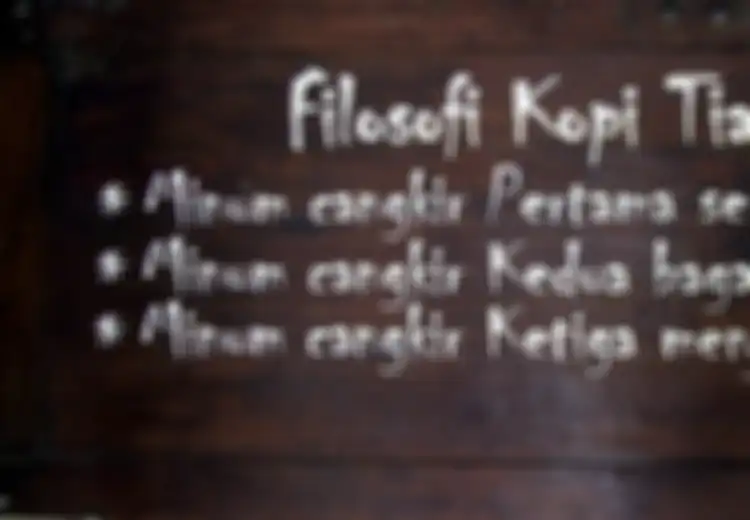 Filosofi Kopi Tia
* Minum cangkir Pertama se
* Minum cangkir Kedua baga
* Minum cangkir Ketiga meny